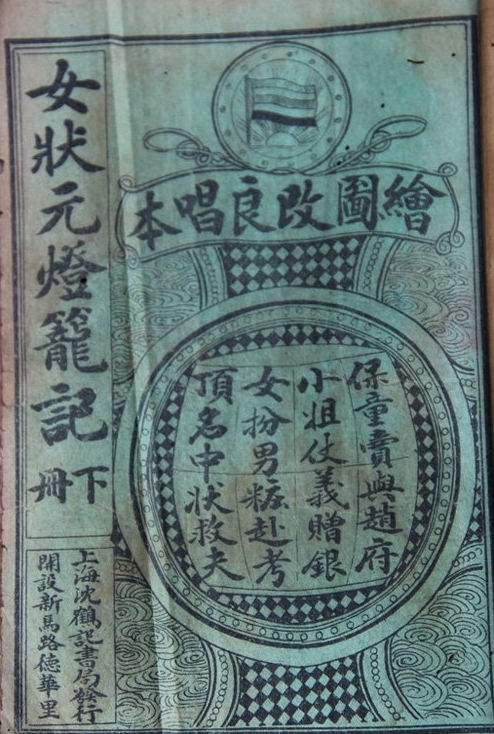 繪圖改良唱本
保童賣與趙府
小姐仗義贈銀
女扮男粧赴考
頂名中狀救夫
女狀元燈籠記
下冊
上海沈鶴記書局發行
開設新馬路德華里